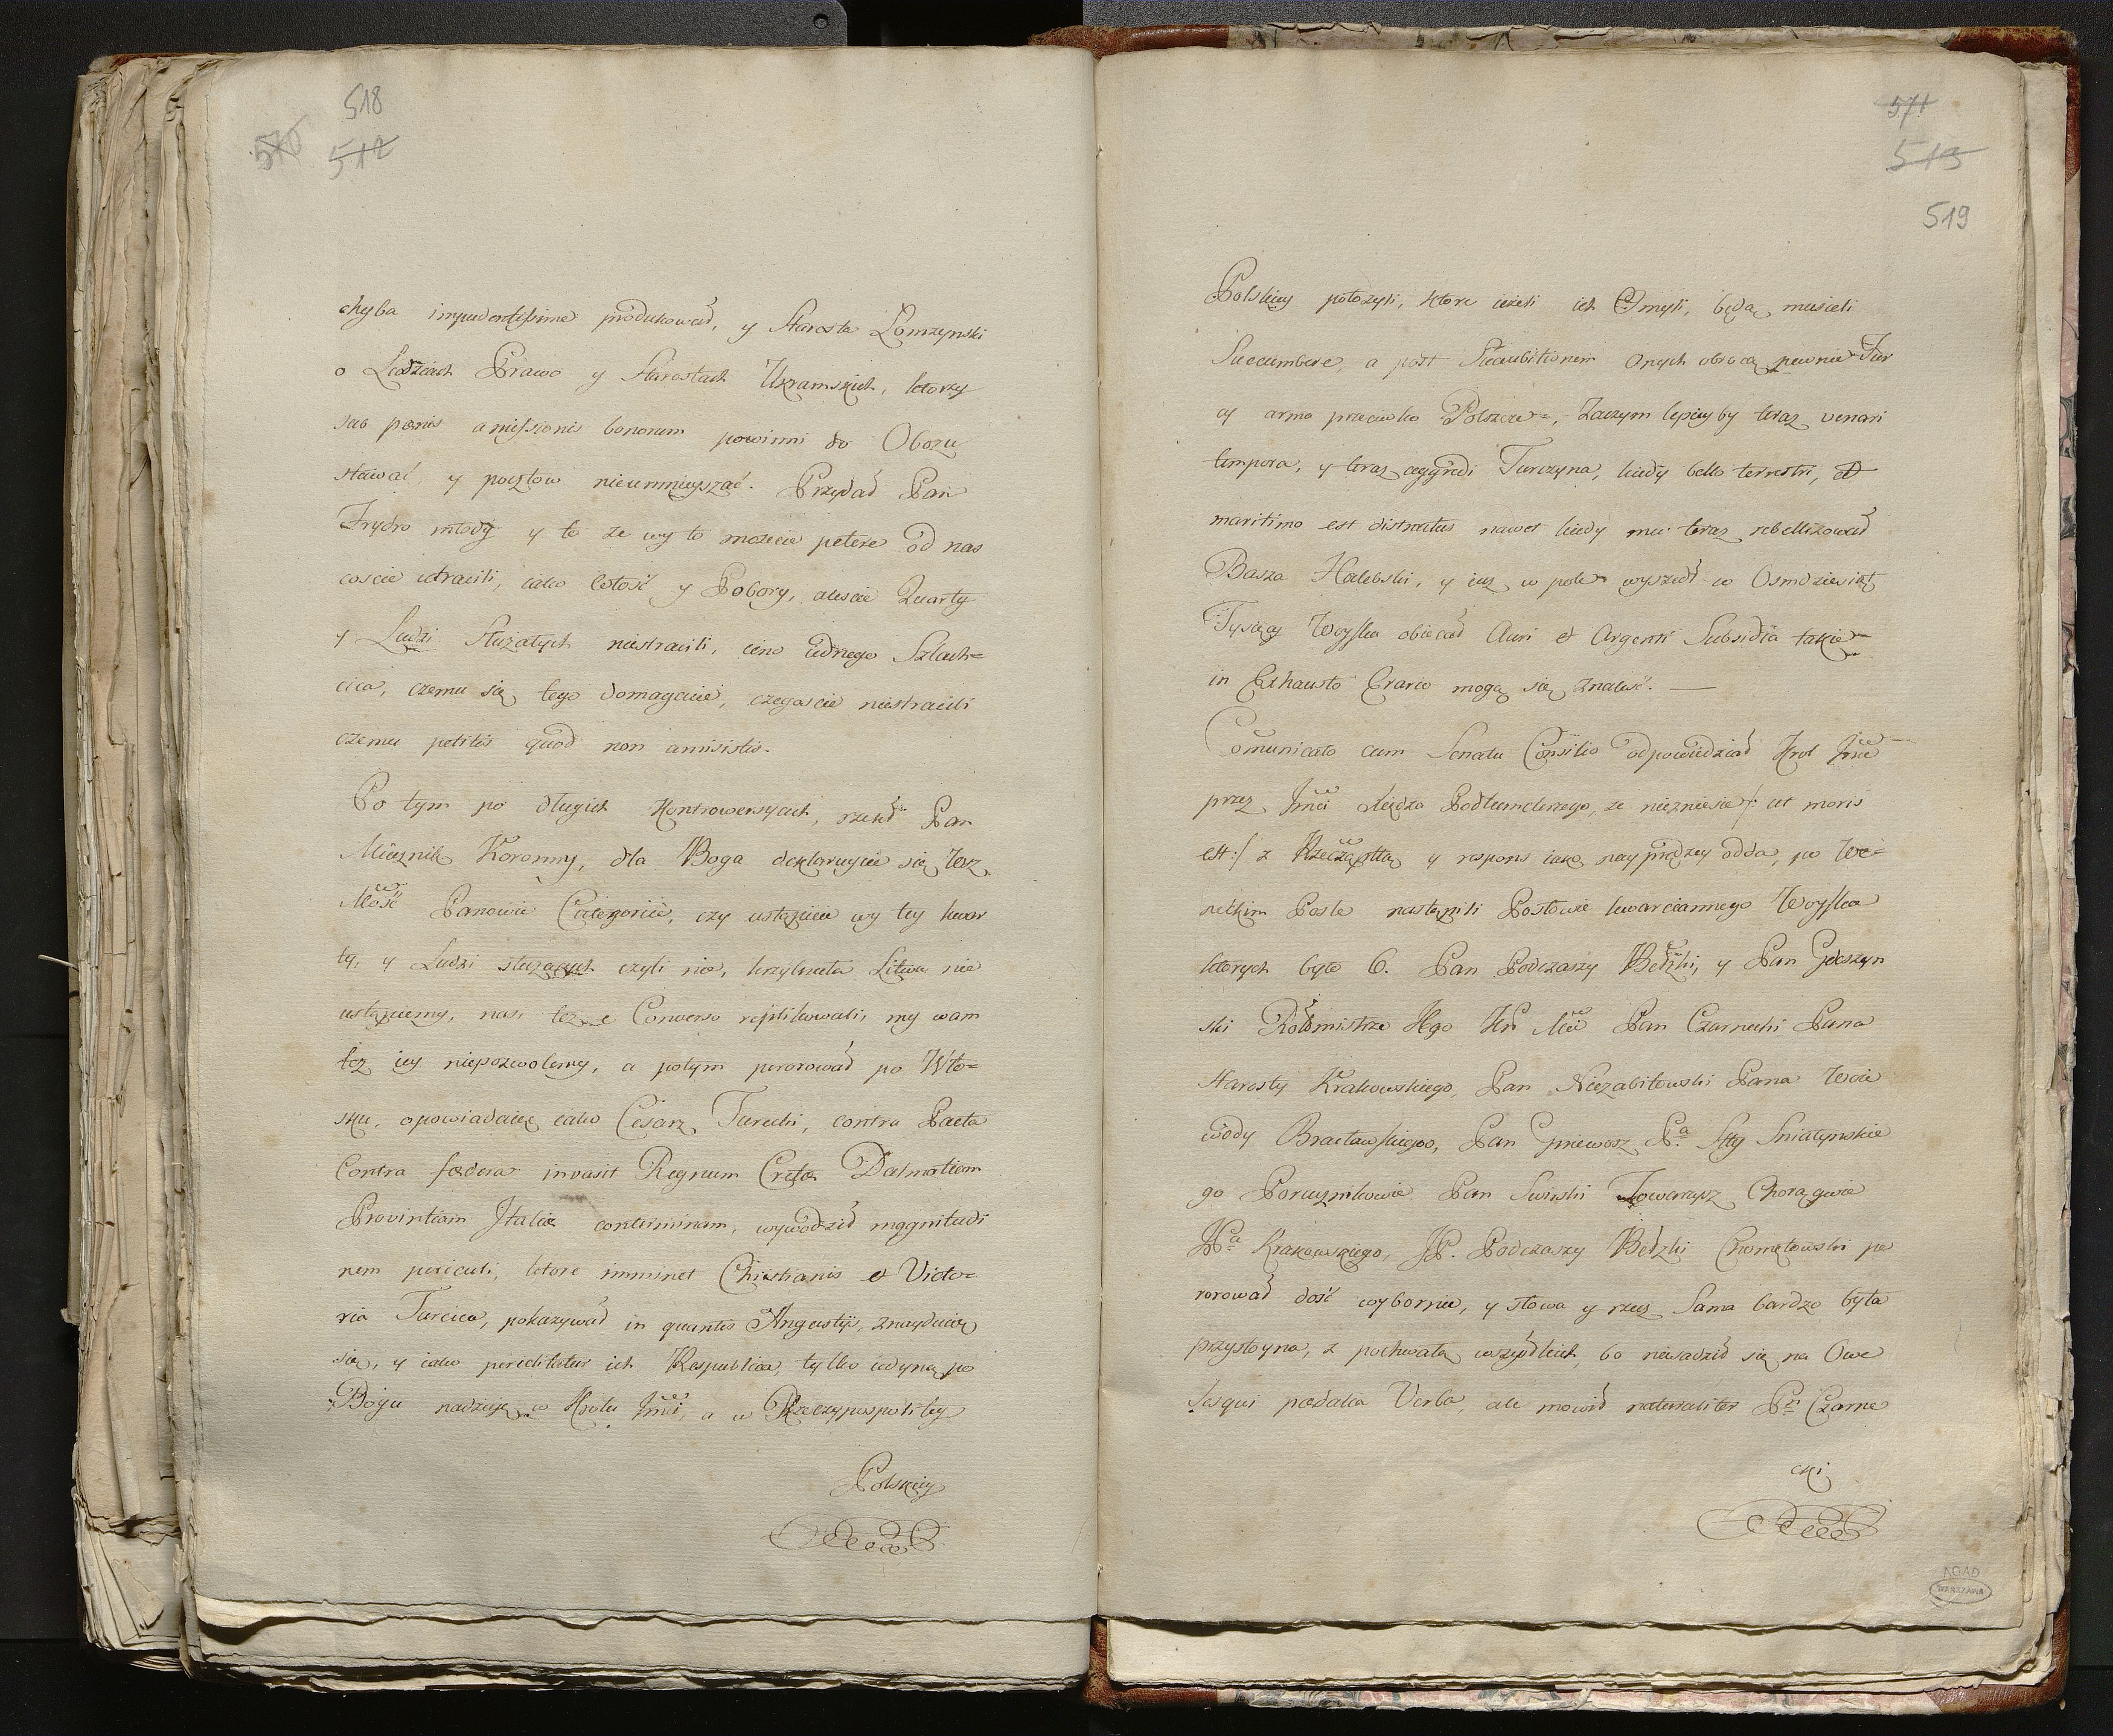 518
570 512
chyba impudentissime produkował, y Starosta Łomzynski
o Ludziach Prawo y Starostach Ukrainskich, ktorzy
sub pænis amissionis bonorum powinni do Obozu
stawać, y pocztow nieumnieyszać. Przydał Pan
Frydro młody y to ze wy to mozecie petere od nas
coscie utracili, iako Cołość y Pobory, alescie Quarty
y Ludzi Służałych niestracili, ieno iednego Szlach=
cica, czemu się tego domagacie, czegoscie niestracili
czemu petitis quod non amisistis.
Po tym po długich Kontrowersyach, rzekł Pan
Miecznik Koronny, dla Boga deklaruycie się Wasz
Mość Panowie Categoricè, czy ustąpicie wy tey kwar
ty, y Ludzi sluzących czyli nie, krzyknęła Litwa nie
ustąpiemy, nasi tez e Converso replikowali, my wam
tez iey niepozwolemy, a potym perorował po Wło=
sku, opowiadaiąc iako Cesarz Turecki, contra Pacta
Contra fædera invasit Regnum Cretæ Dalmatiam
Provintiam Italiæ conterminam, wywodził magnitudi
nem periculi, ktore imminet Christianis et Victo=
ria Turcica, pokazywał in quantis Angustijs, znayduią
się, y iako periclitatur ich Respublica, tylko iedyną po
Bogu nadzieję w Krolu Jmci, a w Rzeczypospolitey
Polskiey
571
513
519
Polskiey położyli, ktore iezeli ich Omyli, będą musieli
Succumbere, a post Succubitionem Onych obrocą pewnie Tur
cy arma przeciwko Polszcze, Zaczym lepieyby teraz venari
tempora, y teraz aggredi Turczyna, kiedy bello terrestri, et
maritimo est distractus nawet kiedy mu teraz rebellizował
Basza Halebski, y iuz w pole wyszedł w Osmdziesiąt
Tysięcy Woyska obiecał Auri et Argenti Subsidia takie
in Exhausto Erario mogą się znaleść. —
Comunicato cum Senatu Consilio odpowiedział Krol Jmć
przez Jmci Xiędza Podkanclerzego, ze niezniesie /: ut moris
est :/ z Rzecząpttą y respons iako nayprędzey odda, po We=
neckim Posle nastąpili Posłowie kwarcianego Woyska
ktorych było 6. Pan Podczaszy Bełzki, y Pan Goszyn
ski Rotmistrze Jego Kr Mci Pan Czarnecki Pana
Starosty Krakowskiego, Pan Niezabitowski Pana Woie
wody Bracławskiego, Pan Gniewosz Pa Stty Sniatynskie
go Porucznikowie Pan Swirski Towarzysz Chorągwie
Pa Krakowskiego, JP. Podczaszy Bełzki Chomętowski pe
rorował dość wybornie, y słowa y rzecz Sama bardzo była
przystoyna, z pochwałą wszystkich, bo niesadził się na Owe
Sesqui pedalia Verba, ale mowił naturaliter Pn Czarne
cki
AGAD
WARSZAWA